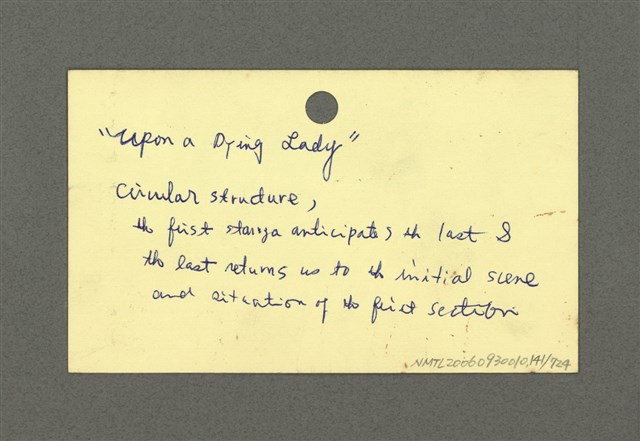 "Upon a Dying Lady"
Circular structure,
th first stanza anticipates th last &
th last returns us to th initial scene
and situation of th first section
NMTL20060930010.141/724